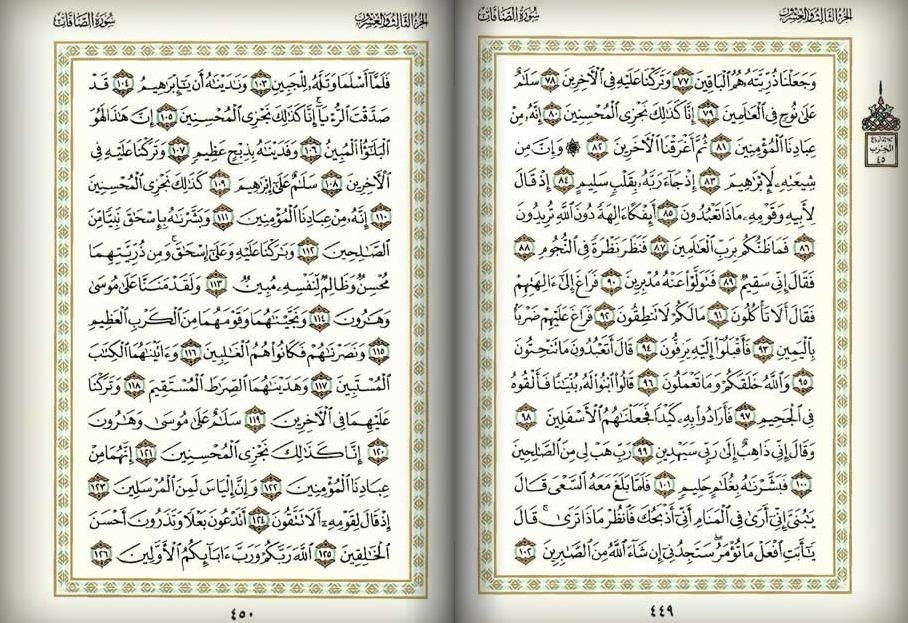 الجزء الثالث والعشرون سورة الصافات
وَجَعَلْنَا ذُرِّيَّتَهُۥ هُمُ ٱلْبَاقِينَ ٧٧ وَتَرَكْنَا عَلَيْهِ فِى ٱلْءَاخِرِينَ ٧٨ سَلَٰمٌ
عَلَىٰ نُوحٍ فِى ٱلْعَٰلَمِينَ ٧٩ إِنَّا كَذَٰلِكَ نَجْزِى ٱلْمُحْسِنِينَ ٨٠ إِنَّهُۥ مِنْ
عِبَادِنَا ٱلْمُؤْمِنِينَ ٨١ ثُمَّ أَغْرَقْنَا ٱلْءَاخَرِينَ ٨٢ ۞ وَإِنَّ مِن
شِيعَتِهِۦ لَإِبْرَٰهِيمَ ٨٣ إِذْ جَآءَ رَبَّهُۥ بِقَلْبٍ سَلِيمٍ ٨٤ إِذْ قَالَ
لِأَبِيهِ وَقَوْمِهِۦ مَاذَا تَعْبُدُونَ ٨٥ أَئِفْكًا ءَالِهَةً دُونَ ٱللَّهِ تُرِيدُونَ
٨٦ فَمَا ظَنُّكُم بِرَبِّ ٱلْعَٰلَمِينَ ٨٧ فَنَظَرَ نَظْرَةً فِى ٱلنُّجُومِ ٨٨
فَقَالَ إِنِّى سَقِيمٌ ٨٩ فَتَوَلَّوْا۟ عَنْهُ مُدْبِرِينَ ٩٠ فَرَاغَ إِلَىٰٓ ءَالِهَتِهِمْ
فَقَالَ أَلَا تَأْكُلُونَ ٩١ مَا لَكُمْ لَا تَنطِقُونَ ٩٢ فَرَاغَ عَلَيْهِمْ ضَرْبًۢا
بِٱلْيَمِينِ ٩٣ فَأَقْبَلُوٓا۟ إِلَيْهِ يَزِفُّونَ ٩٤ قَالَ أَتَعْبُدُونَ مَا تَنْحِتُونَ
٩٥ وَٱللَّهُ خَلَقَكُمْ وَمَا تَعْمَلُونَ ٩٦ قَالُوا۟ ٱبْنُوا۟ لَهُۥ بُنْيَٰنًا فَأَلْقُوهُ
فِى ٱلْجَحِيمِ ٩٧ فَأَرَادُوا۟ بِهِۦ كَيْدًا فَجَعَلْنَٰهُمُ ٱلْأَسْفَلِينَ ٩٨
وَقَالَ إِنِّى ذَاهِبٌ إِلَىٰ رَبِّى سَيَهْدِينِ ٩٩ رَبِّ هَبْ لِى مِنَ ٱلصَّٰلِحِينَ
١٠٠ فَبَشَّرْنَٰهُ بِغُلَٰمٍ حَلِيمٍ ١٠١ فَلَمَّا بَلَغَ مَعَهُ ٱلسَّعْىَ قَالَ
يَٰبُنَىَّ إِنِّىٓ أَرَىٰ فِى ٱلْمَنَامِ أَنِّىٓ أَذْبَحُكَ فَٱنظُرْ مَاذَا تَرَىٰ ۚ قَالَ
يَٰٓأَبَتِ ٱفْعَلْ مَا تُؤْمَرُ ۖ سَتَجِدُنِىٓ إِن شَآءَ ٱللَّهُ مِنَ ٱلصَّٰبِرِينَ ١٠٢
٤٤٩
الحزب
٤٥
الجزء الثالث والعشرون سورة الصافات
فَلَمَّآ أَسْلَمَا وَتَلَّهُۥ لِلْجَبِينِ ١٠٣ وَنَٰدَيْنَٰهُ أَن يَٰٓإِبْرَٰهِيمُ ١٠٤ قَدْ
صَدَّقْتَ ٱلرُّءْيَآ ۚ إِنَّا كَذَٰلِكَ نَجْزِى ٱلْمُحْسِنِينَ ١٠٥ إِنَّ هَٰذَا لَهُوَ
ٱلْبَلَٰٓؤُا۟ ٱلْمُبِينُ ١٠٦ وَفَدَيْنَٰهُ بِذِبْحٍ عَظِيمٍ ١٠٧ وَتَرَكْنَا عَلَيْهِ فِى
ٱلْءَاخِرِينَ ١٠٨ سَلَٰمٌ عَلَىٰٓ إِبْرَٰهِيمَ ١٠٩ كَذَٰلِكَ نَجْزِى ٱلْمُحْسِنِينَ
١١٠ إِنَّهُۥ مِنْ عِبَادِنَا ٱلْمُؤْمِنِينَ ١١١ وَبَشَّرْنَٰهُ بِإِسْحَٰقَ نَبِيًّا مِّنَ
ٱلصَّٰلِحِينَ ١١٢ وَبَٰرَكْنَا عَلَيْهِ وَعَلَىٰٓ إِسْحَٰقَ ۚ وَمِن ذُرِّيَّتِهِمَا
مُحْسِنٌ وَظَالِمٌ لِّنَفْسِهِۦ مُبِينٌ ١١٣ وَلَقَدْ مَنَنَّا عَلَىٰ مُوسَىٰ
وَهَٰرُونَ ١١٤ وَنَجَّيْنَٰهُمَا وَقَوْمَهُمَا مِنَ ٱلْكَرْبِ ٱلْعَظِيمِ
١١٥ وَنَصَرْنَٰهُمْ فَكَانُوا۟ هُمُ ٱلْغَٰلِبِينَ ١١٦ وَءَاتَيْنَٰهُمَا ٱلْكِتَٰبَ
ٱلْمُسْتَبِينَ ١١٧ وَهَدَيْنَٰهُمَا ٱلصِّرَٰطَ ٱلْمُسْتَقِيمَ ١١٨ وَتَرَكْنَا
عَلَيْهِمَا فِى ٱلْءَاخِرِينَ ١١٩ سَلَٰمٌ عَلَىٰ مُوسَىٰ وَهَٰرُونَ
١٢٠ إِنَّا كَذَٰلِكَ نَجْزِى ٱلْمُحْسِنِينَ ١٢١ إِنَّهُمَا مِنْ
عِبَادِنَا ٱلْمُؤْمِنِينَ ١٢٢ وَإِنَّ إِلْيَاسَ لَمِنَ ٱلْمُرْسَلِينَ ١٢٣
إِذْ قَالَ لِقَوْمِهِۦٓ أَلَا تَتَّقُونَ ١٢٤ أَتَدْعُونَ بَعْلًا وَتَذَرُونَ أَحْسَنَ
ٱلْخَٰلِقِينَ ١٢٥ ٱللَّهَ رَبَّكُمْ وَرَبَّ ءَابَآئِكُمُ ٱلْأَوَّلِينَ ١٢٦
٤٥٠